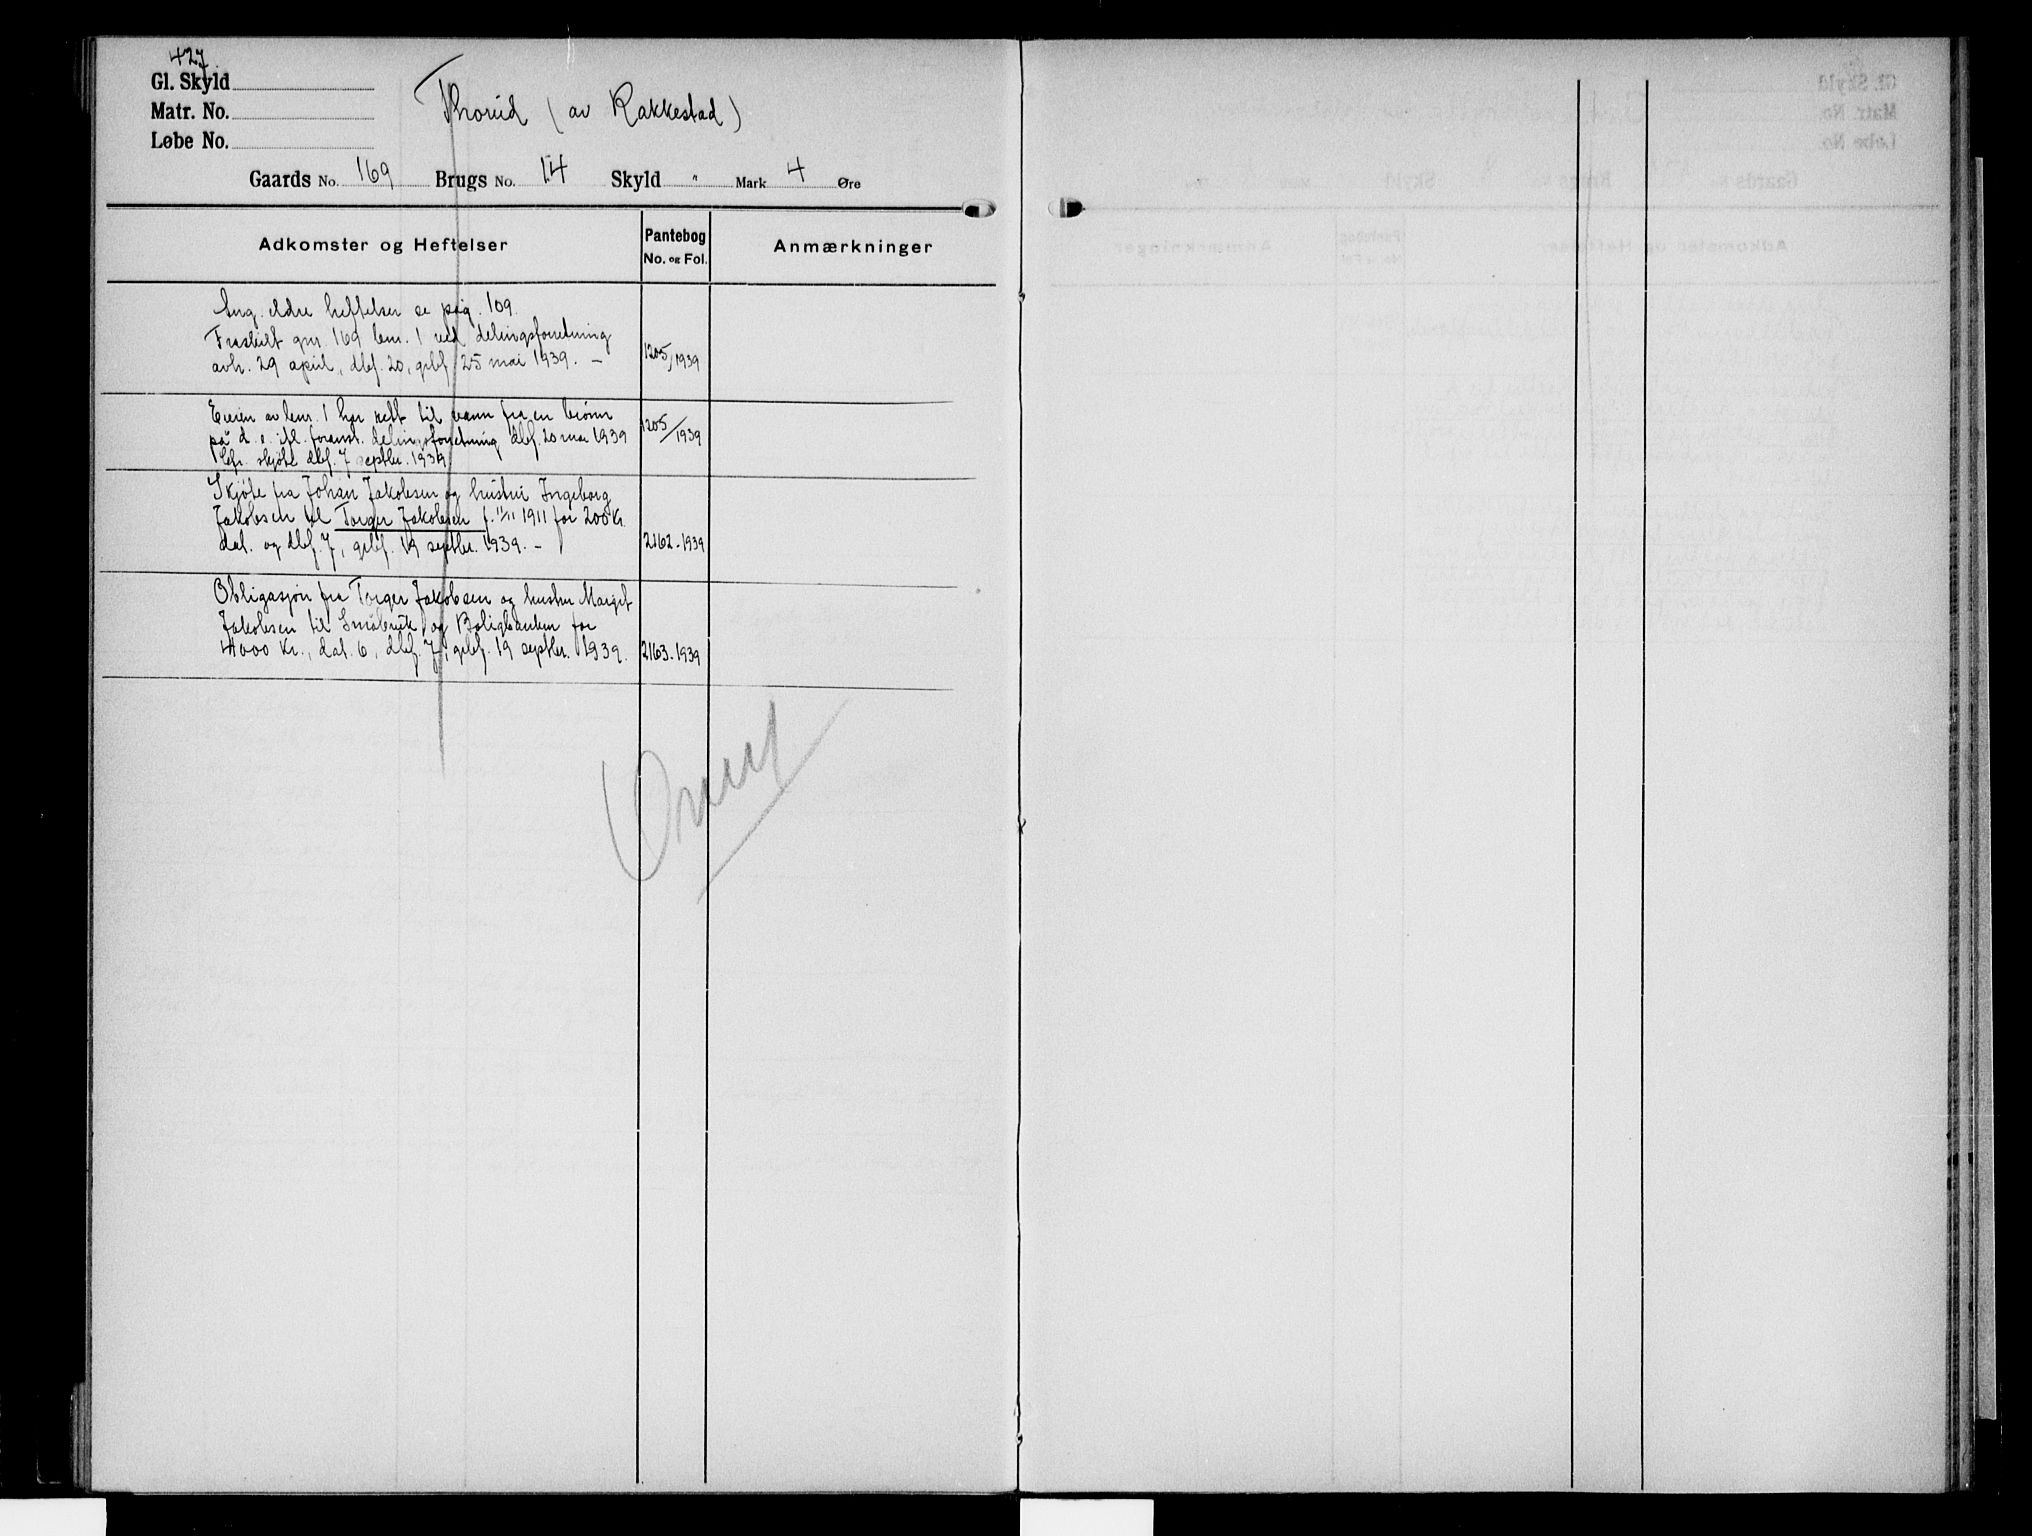 427
Gl. Skyld
Matr. No.
Løbe No.
Thorud (av Rakkestad)
Gaards No. 169 Brugs No. 14 Skyld " Mark 4 Øre
Adkomster og Heftelser
Pantebog
No. og Fol.
Anmærkninger
Ang. eldre heftelser se pag. 109.
Fraskilt gnr. 169 bnr. 1 ved delingsforretning
avh. 29 april, dbf. 20, grbf. 25 mai 1939. –
1205/1939
Eieren av bnr. 1 har rett til vann fra en brønn
på d. e. ifl. foranst. delingsforretning dbf. 20 mai 1939
cfr. skjøte dbf. 7 septbr. 1939
1205/1939
Skjøte fra Johan Jakobsen og hustru Ingeborg
Jakobsen til Torger Jakobsen f. 11/11 1911 for 200 Kr.
dat. og dbf. 7, grbf. 19 septbr. 1939. –
2162-1939
Obligasjon fra Torger Jakobsen og hustru Margit
Jakobsen til Småbruk og Boligbanken for
4000 Kr., dat. 6, dbf. 7, grbf. 19 septbr. 1939.
2163-1939